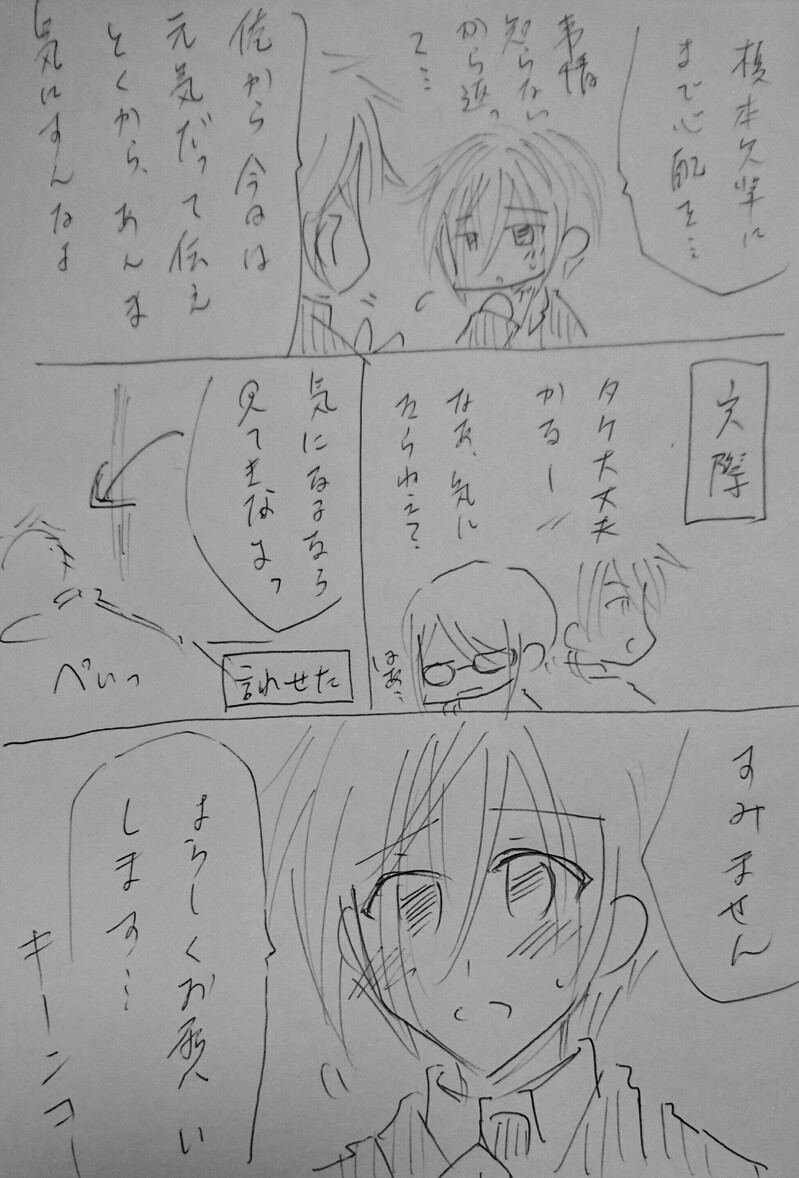 榎本先輩に
まで心配を…
事情
知らない
から返っ
て…
俺から今日は
元気だって伝え
とくから、あんま
気にすんなよ
実際
タケ大丈夫
かな〜
なあ、気に
ならねえ?
はあ…
気になるなら
見てきなよっ
言わせた
べいっ
すみません
よろしくお願い
します…
キーンコー